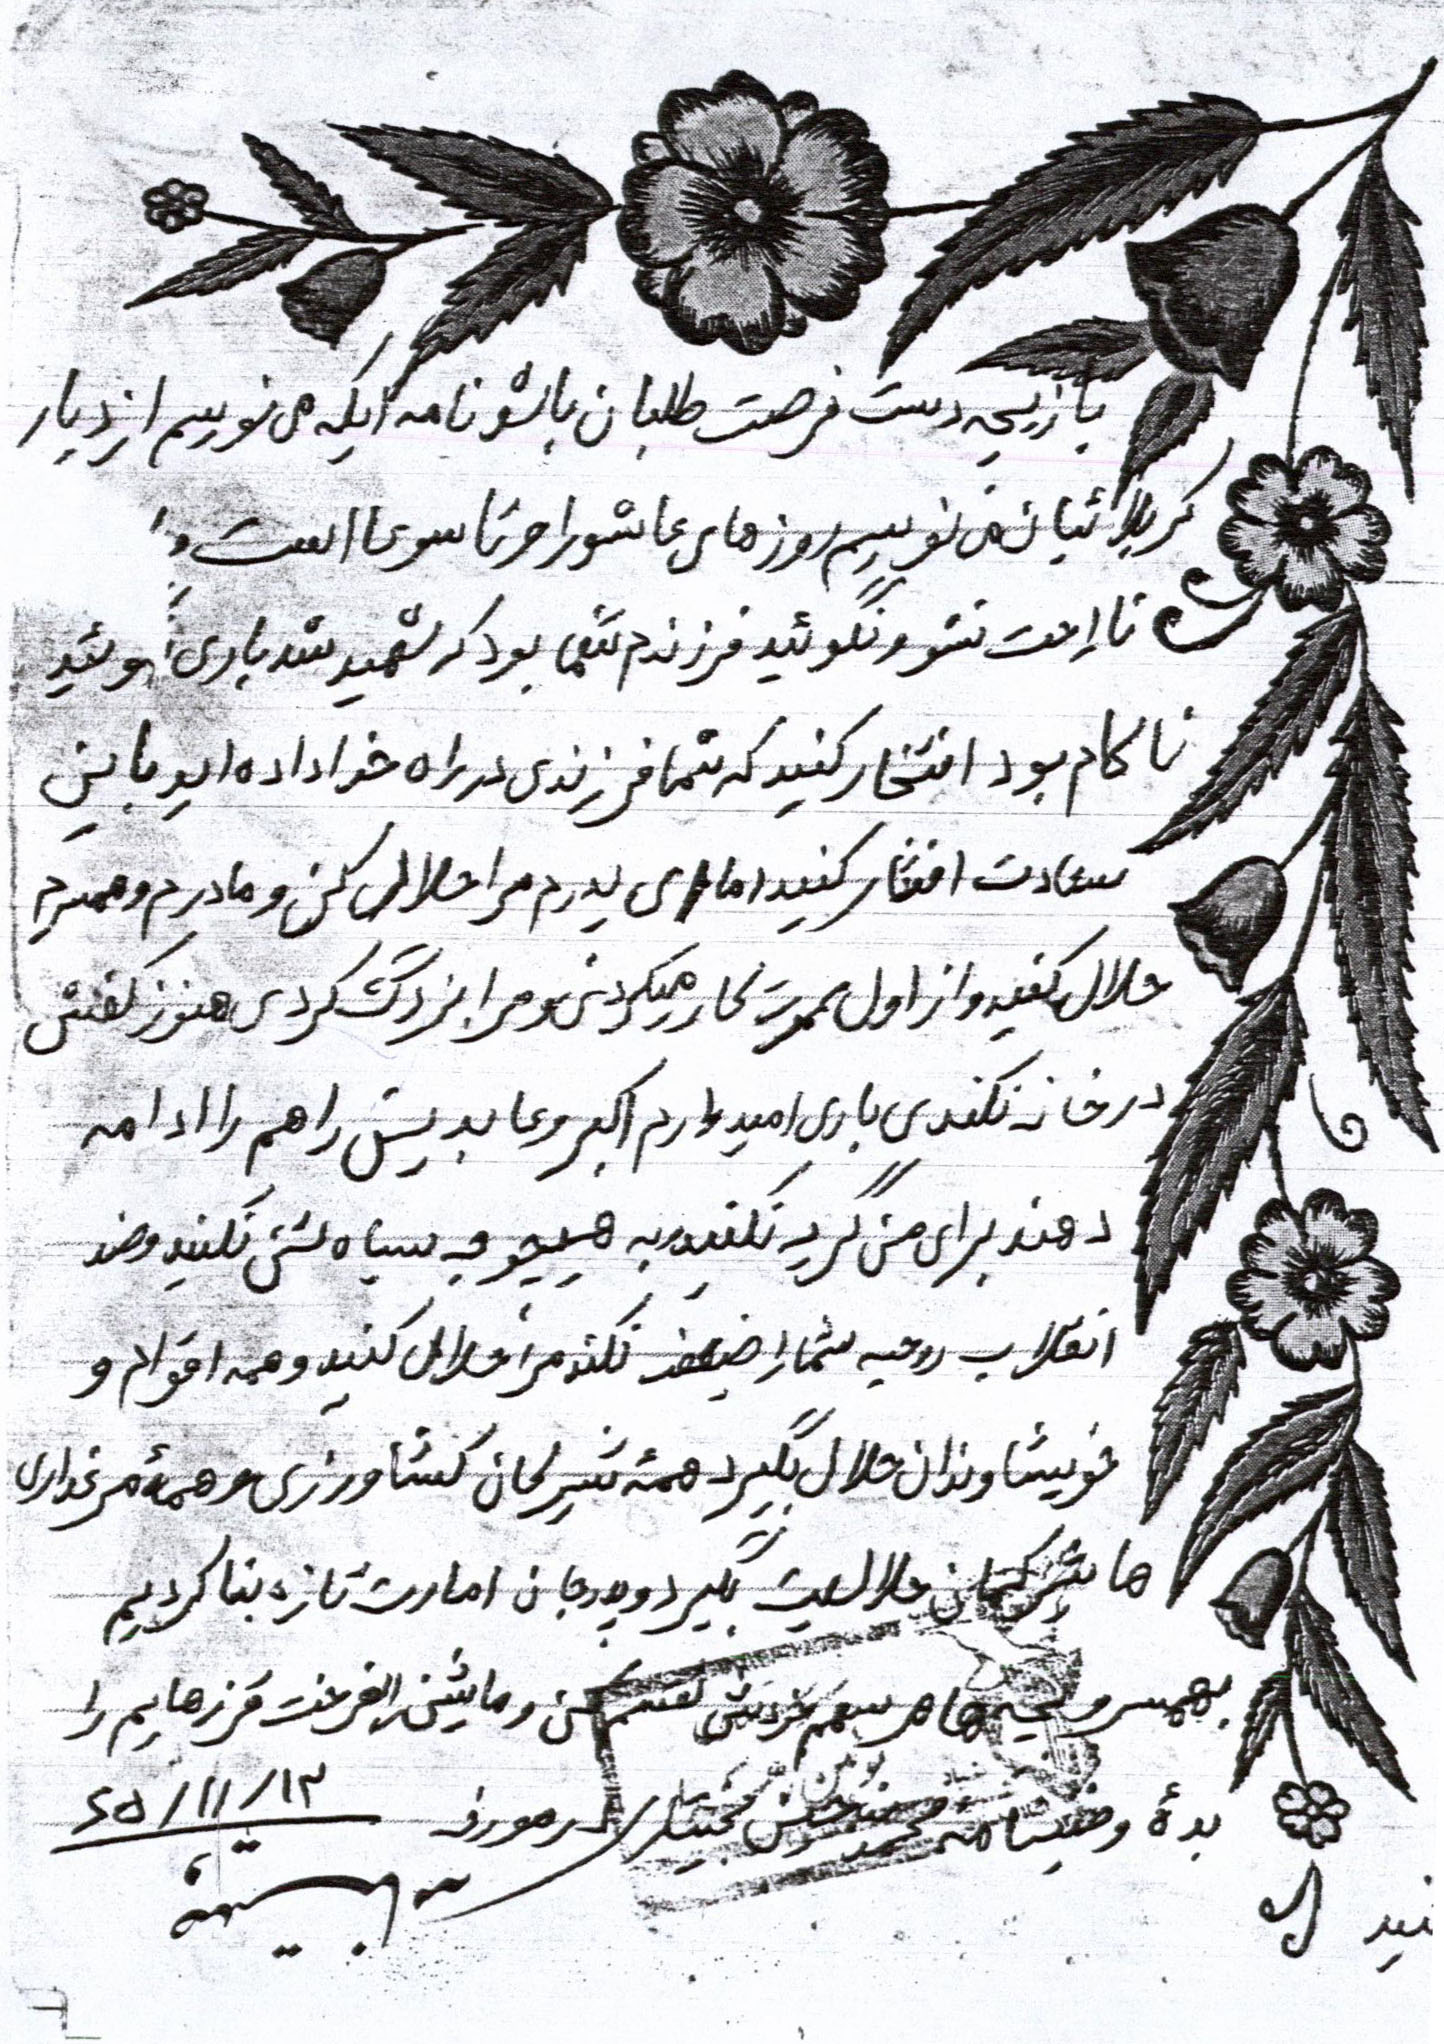 بازیچه دست فرصت طلبان باشو نامه ایکه می نویسم از دیار
کربلا ئیان می نویسم روزهای عاشورا و تاسوعا است و
نااحت نشو و نگوئید فرزندم تنها بود که شهید شد باری نگوئید
ناکام بود افتخار کنید که شما فرزندی در راه خدا داده اید با این
سعادت افتخار کنید اما ای پدرم مرا حلال کن و مادرم و همسرم
حلال کنید و از اول عمرت کار میکردی و مرا بزرگ کردی هنوز کفش
در خانه نکندی باری امیدوارم اکبر و عابدیش راهم را ادامه
دهند برای من گریه نکنید به هیچوجه سیاه پشی نکنید و ضد
انقلاب روحیه شما را ضعیف نکند مرا حلال کنید و همه اقوام و
خویشاوندان حلال بگیرد همهٔ شریکان کشاورزی و همهٔ مرغداری
ها شریکمان حلالیت بگیرد و پدرجان امارت تازه بنا کردیم
بهمسر و بچه ها هر سهم خودش تقسیم کن و ماشین را بفرخت قرزهایم را
بدهٔ وصیتنامه محمد حسن بختیاری در مورخه ۶۵/۱۱/۱۲
نید